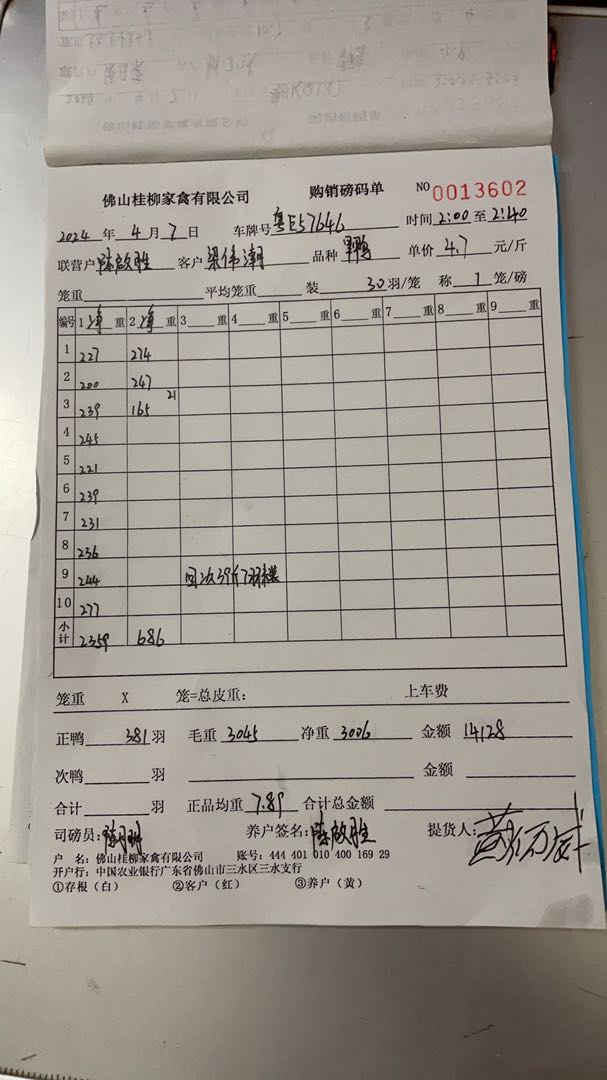 佛山桂柳家禽有限公司 购销磅码单 NO 0013602
2024 年 4 月 7 日 车牌号 粤E57646 时间 2:00 至 2:40
联营户 陈啟胜 客户 梁伟潮 品种 鸭 单价 4.7 元/斤
笼重 平均笼重 装 30 羽/笼 称 1 笼/磅
编号 1 净 重 2 净 重 3 重 4 重 5 重 6 重 7 重 8 重 9 重
1 227 274
2 200 247
3 239 165 21
4 245
5 221
6 239
7 231
8 236
9 244 39斤
10 277
小计 2359 686
笼重 X 笼=总皮重: 上车费
正鸭 381 羽 毛重 3045 净重 3006 金额 14128
次鸭 羽 金额
合计 羽 正品均重 7.89 合计总金额
司磅员: 陈 养户签名: 陈啟胜 提货人:
户 名: 佛山桂柳家禽有限公司 账号: 444 401 010 400 169 29
开户行: 中国农业银行广东省佛山市三水区三水支行
①存根(白) ②客户(红) ③养户(黄)